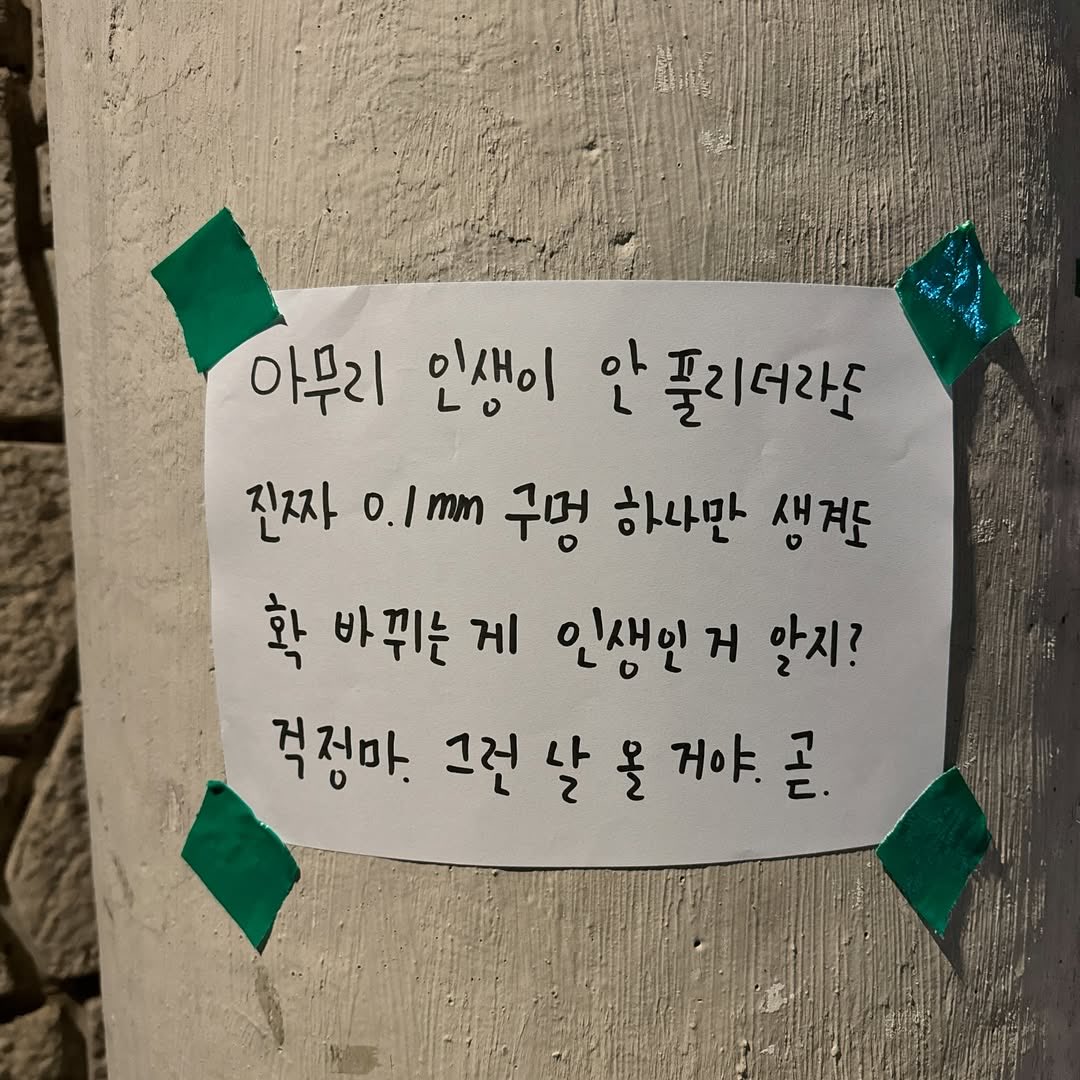 아무리 인생이 안 풀리더라도
진짜 0.1mm 구멍 하나만 생겨도
확 바뀌는 게 인생인 거 알지?
걱정마. 그런 날 올 거야. 곧.